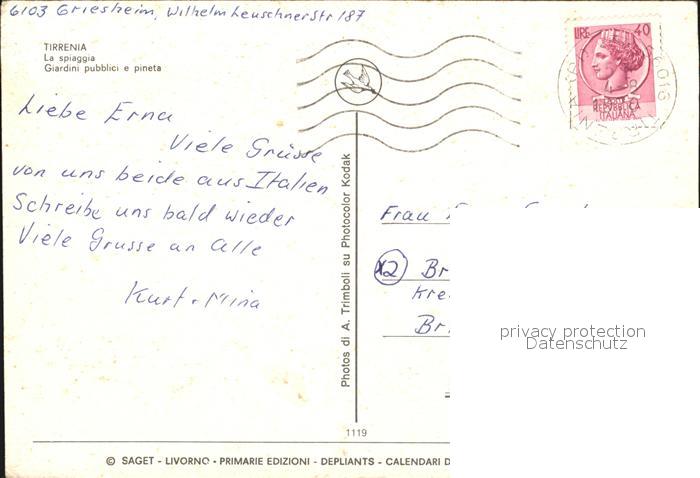 6103 Griesheim, Wilhelm Leuschnerstr 187
TIRRENIA
La spiaggia
Giardini pubblici e pineta
LIRE 40
REPVBBLICA
ITALIANA
Liebe Erna
Viele Grüsse
von uns beide aus Italien
Schreibe uns bald wieder
Viele Grusse an alle
Kurt + Mina
Photos di A. Trimboli su Photocolor Kodak
Frau
x2 Br
Kre
Br
privacy protection
Datenschutz
1119
© SAGET - LIVORNO - PRIMARIE EDIZIONI - DEPLIANTS - CALENDARI D